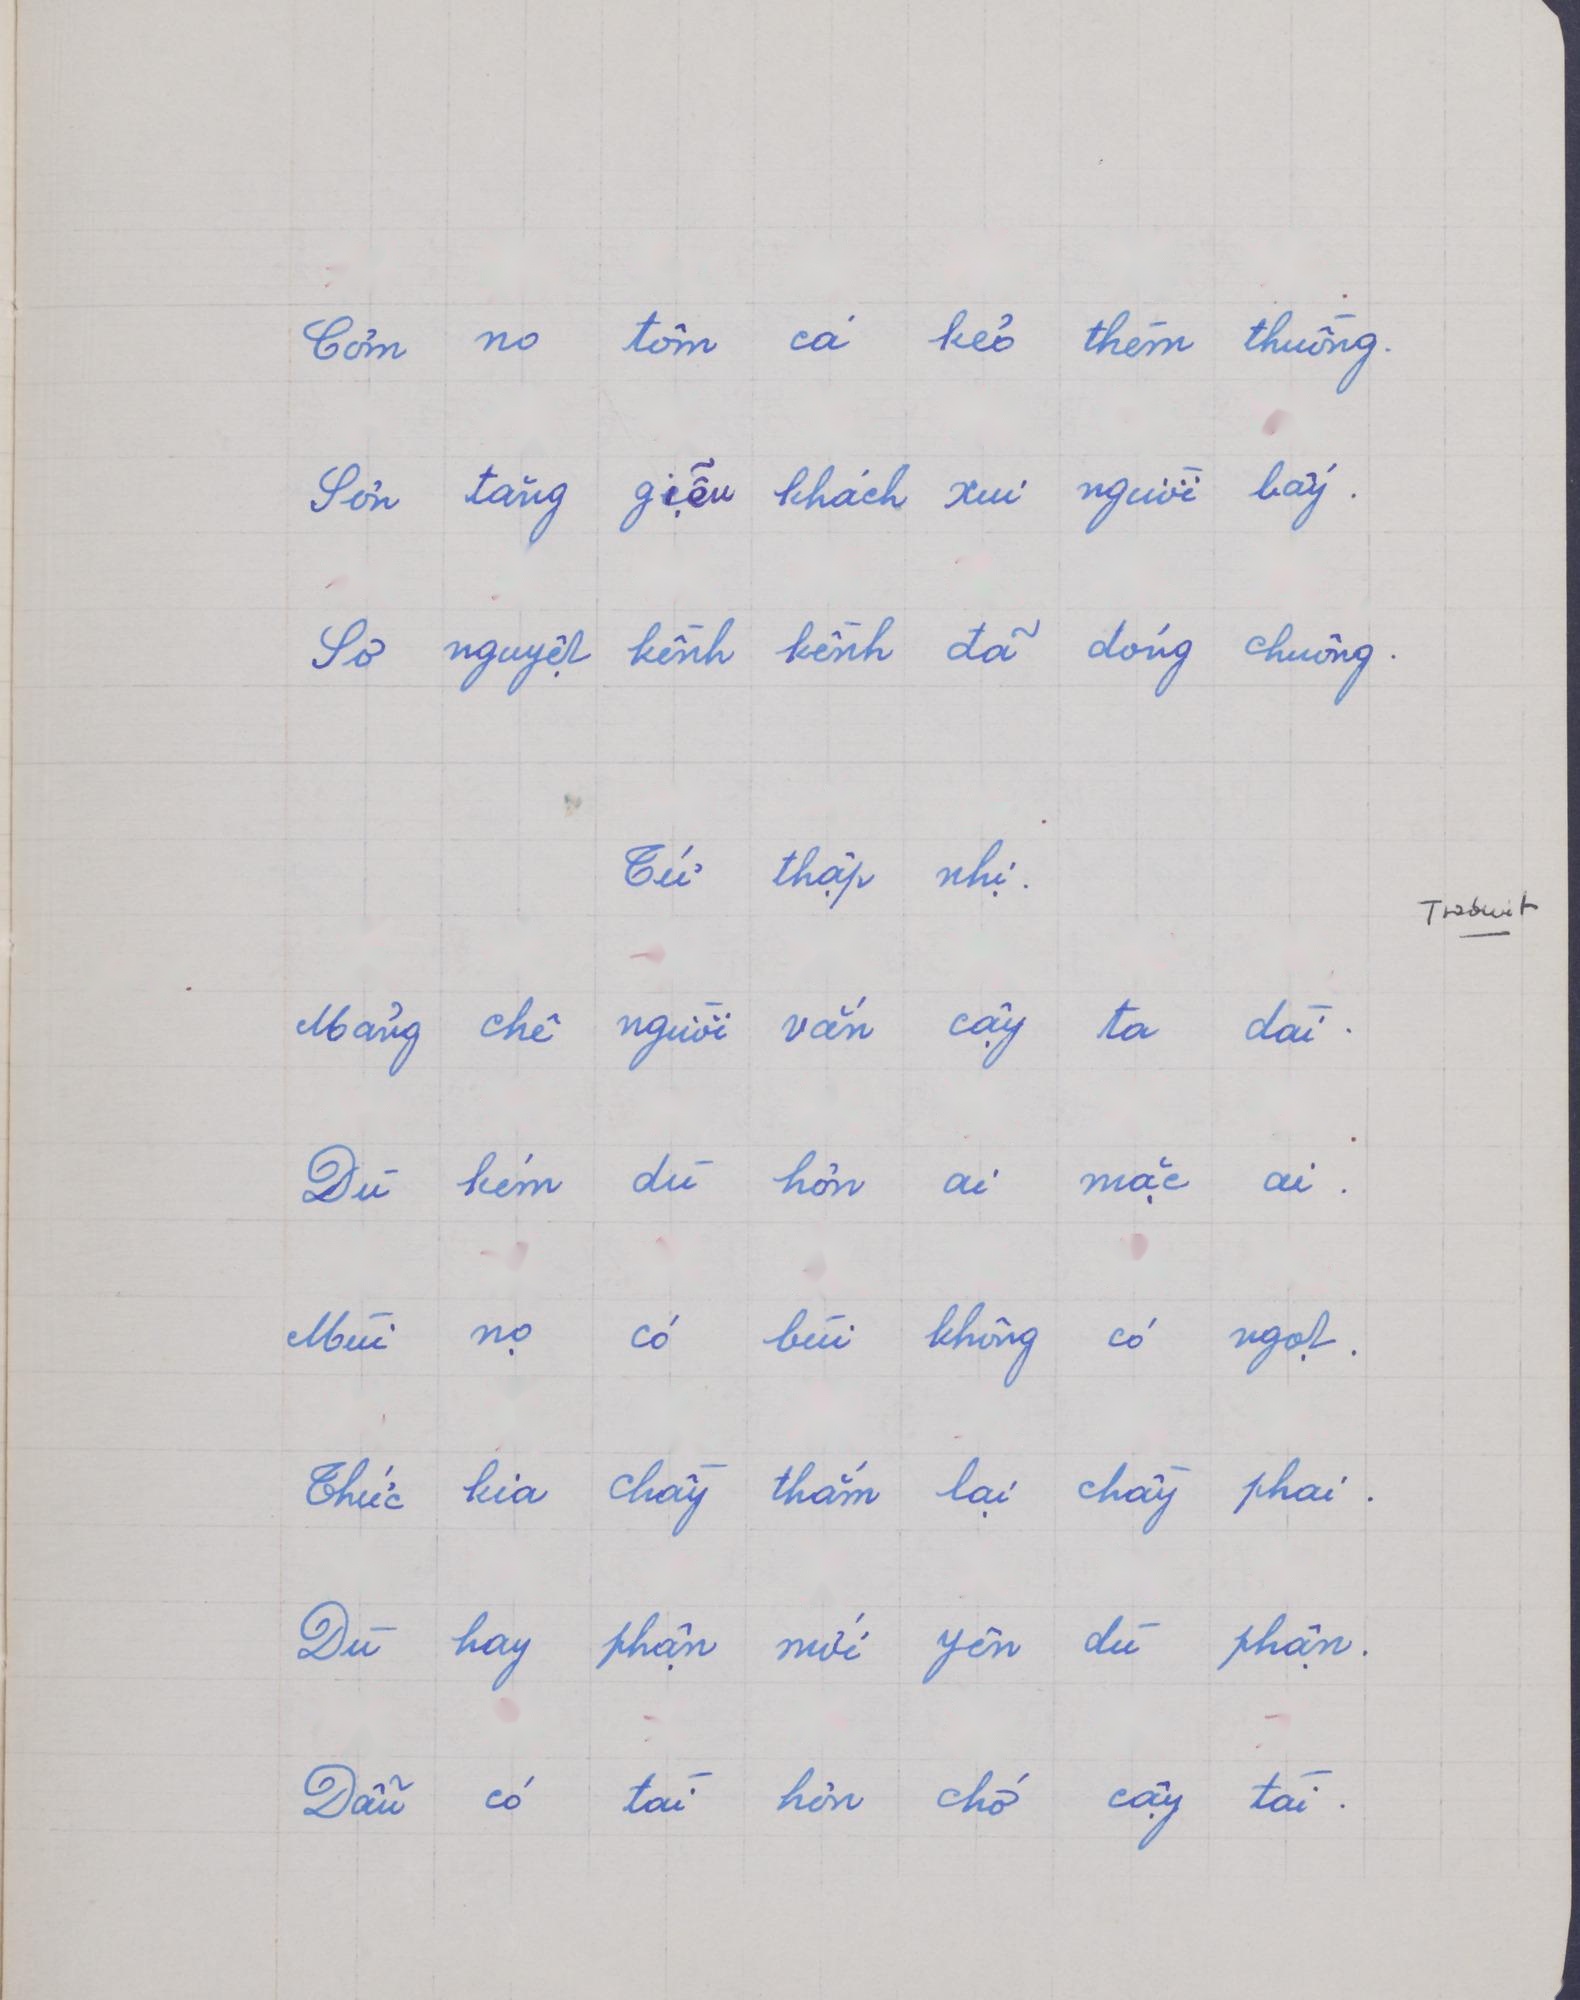 Cơm no tôm cá kẻo thèm thuồng.
Sơn tăng giễu khách xui người bấy.
Sơ nguyệt kềnh kềnh đã dóng chuông.
Tứ thập nhị.
Mảng chê người vắn cậy ta dài.
Dù kém dù hơn ai mặc ai.
Mùi nọ có bùi không có ngọt.
Thức kia chầy thắm lại chầy phai.
Dù hay phận mới yên dù phận.
Dẫu có tài hơn chớ cậy tài.